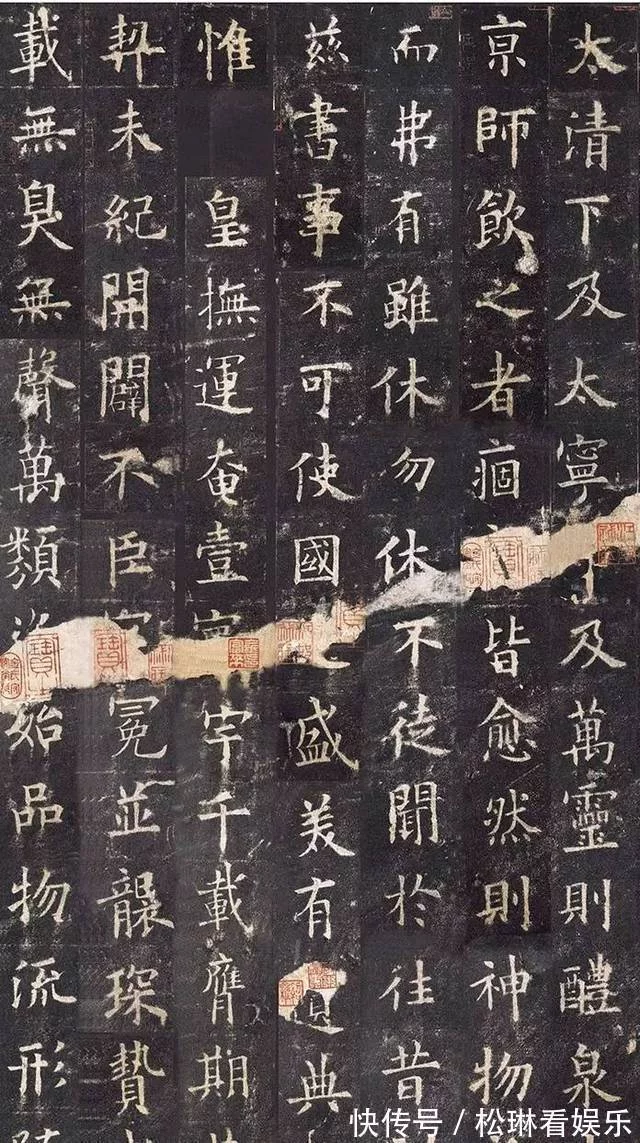 太清下及太寧及萬靈則醴泉
京師飲之者痼皆愈然則神物
而弗有雖休勿休不徒聞於往昔
茲書事不可使國盛美有典
惟 皇撫運奄壹寰宇千載膺期
契未紀開闢不臣冕並襲琛贄
載無臭無聲萬類始品物流形
快传号 / 松琳看娱乐